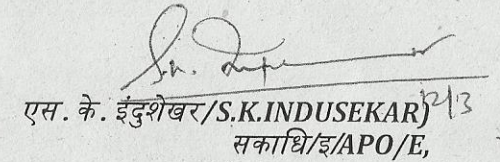 एस. के. इंदुशेखर/S.K.INDUSEKAR)
12/3
सकाधि/इ/APO/E,